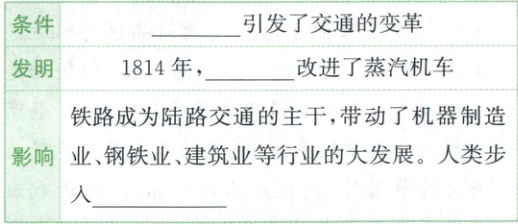 条件 ________引发了交通的变革
发明 1814年,________改进了蒸汽机车
铁路成为陆路交通的主干,带动了机器制造
影响 业、钢铁业、建筑业等行业的大发展。人类步
入____________